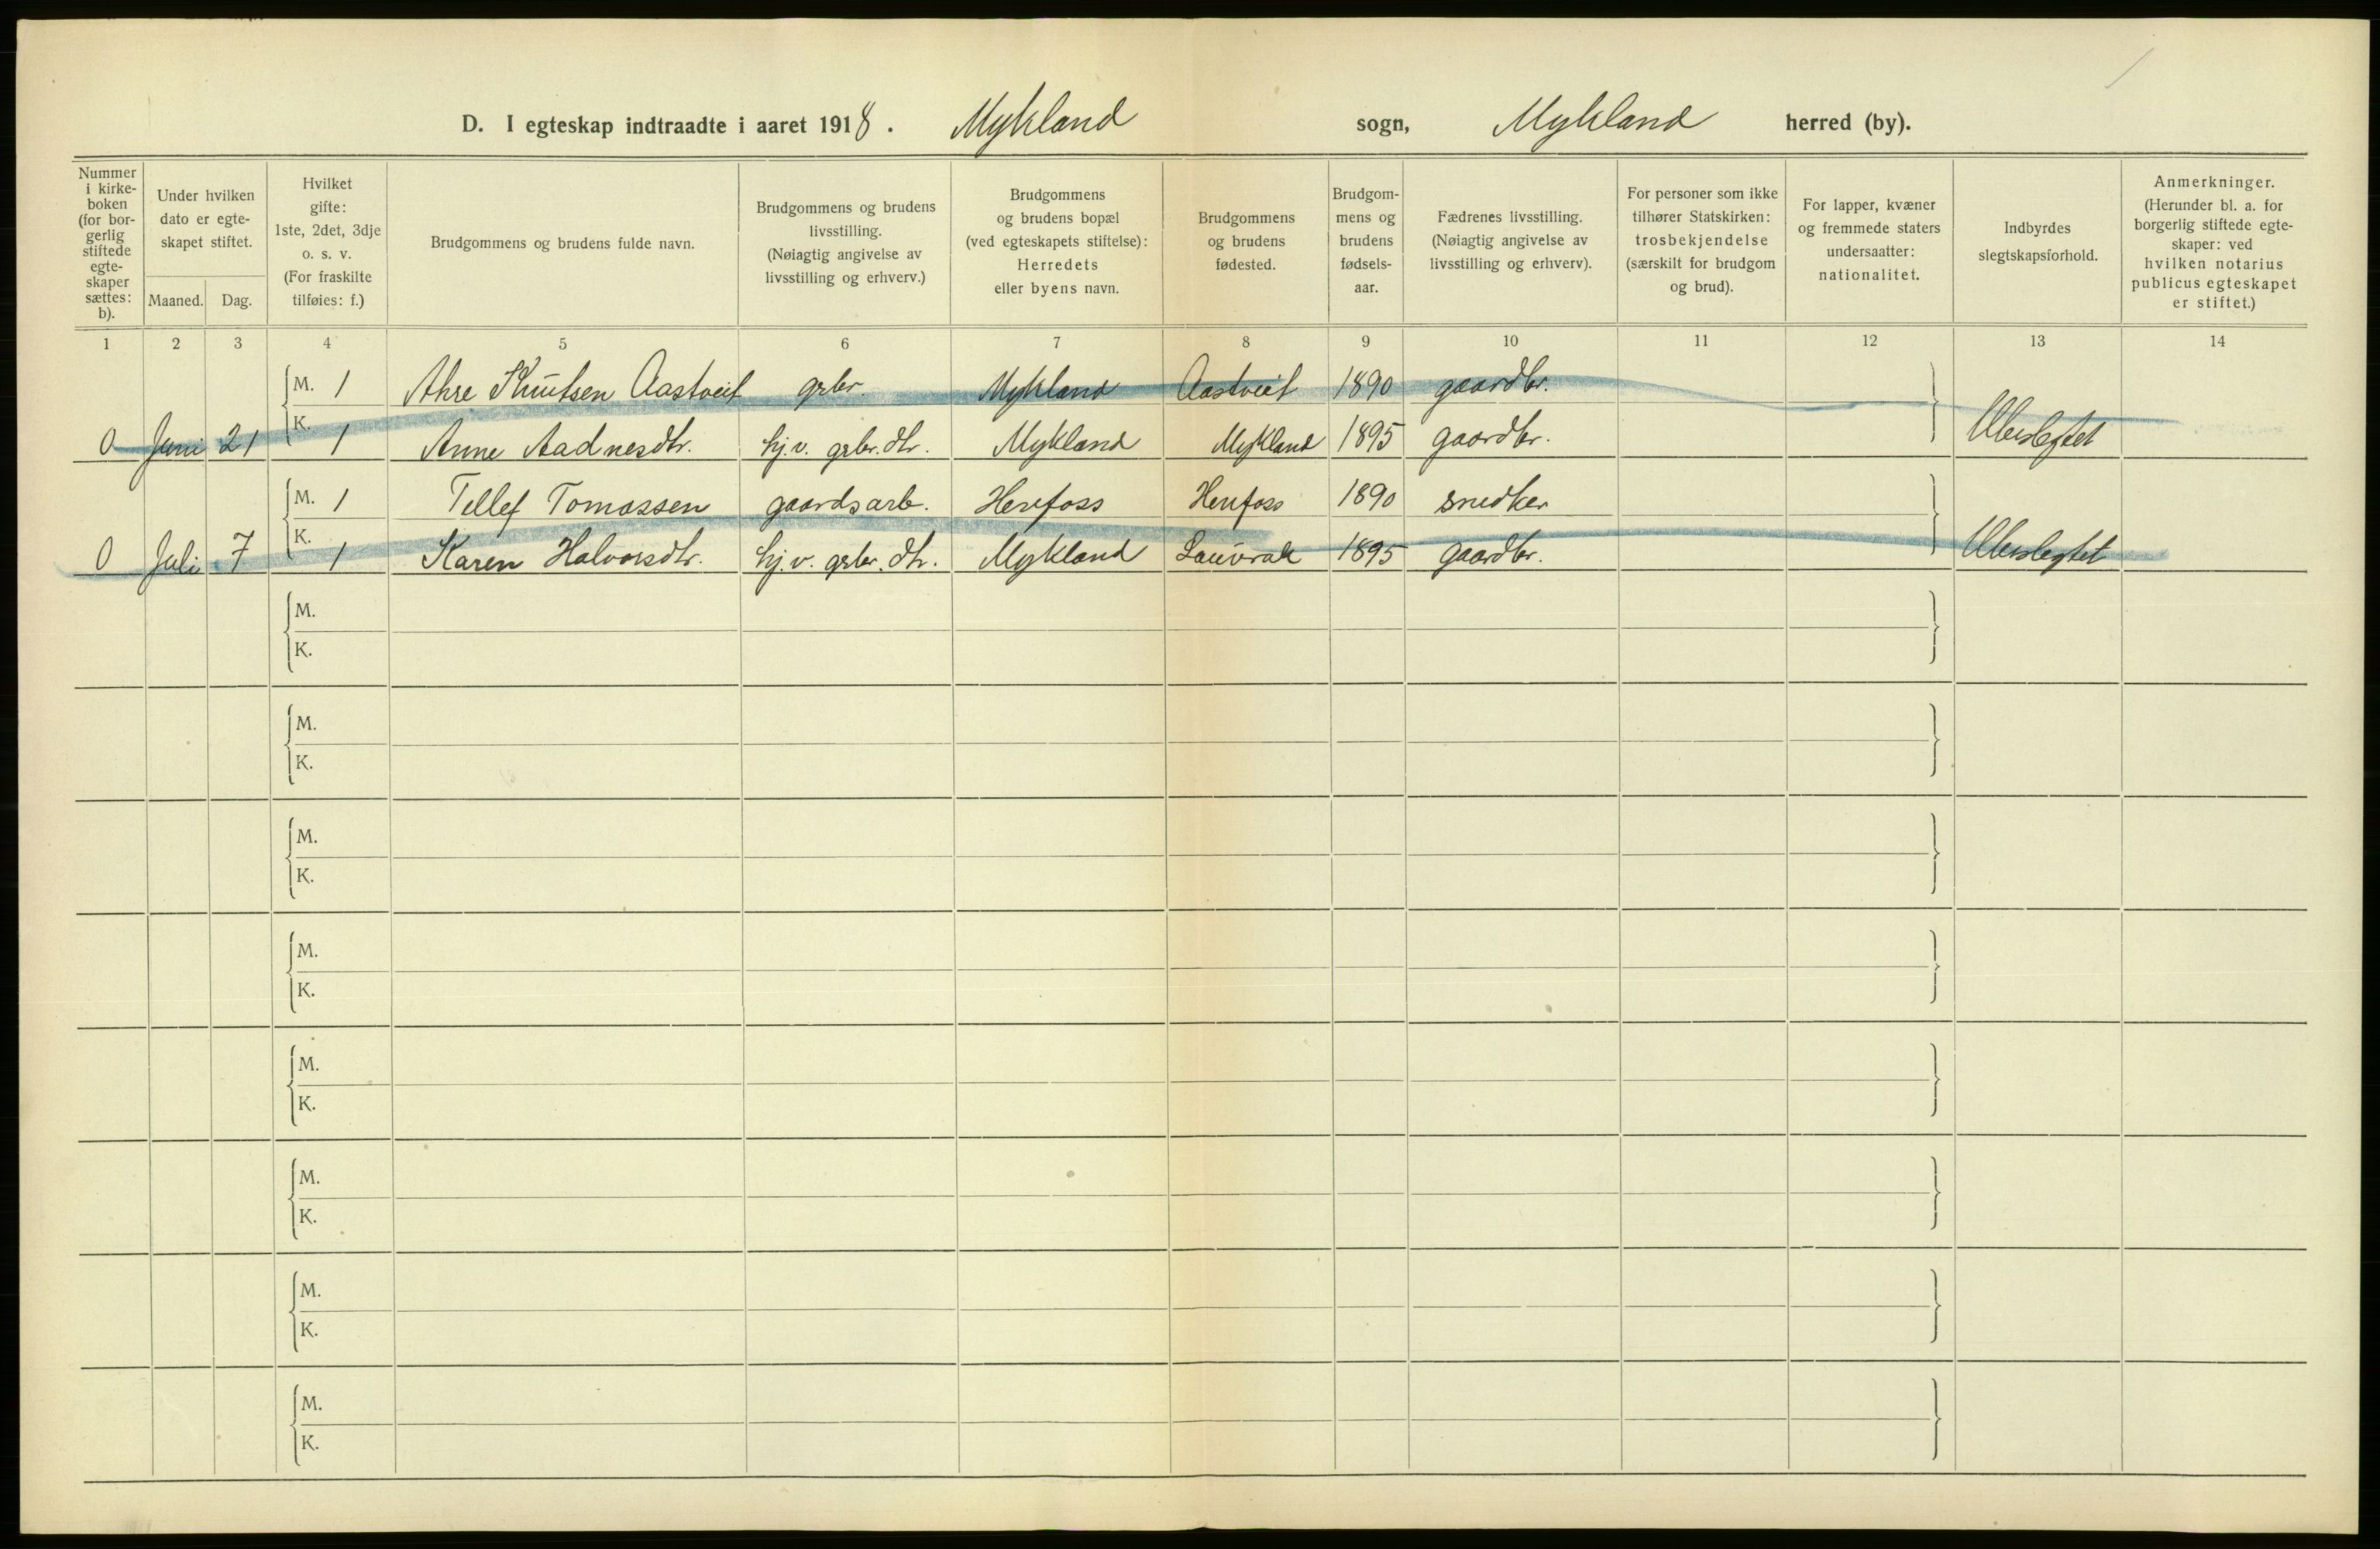 D. I egteskap indtraadte i aaret 1918. Mykland sogn, Mykland herred (by).
Nummer i kirke-boken (for bor-gerlig stiftede egte-skaper sættes: b).
Under hvilken dato er egte-skapet stiftet.
Maaned. Dag.
Hvilket gifte: 1ste, 2det, 3dje o. s. v. (For fraskilte tilføies: f.)
Brudgommens og brudens fulde navn.
Brudgommens og brudens livsstilling. (Nøiagtig angivelse av livsstilling og erhverv.)
Brudgommens og brudens bopæl (ved egteskapets stiftelse): Herredets eller byens navn.
Brudgommens og brudens fødested.
Brudgom-mens og brudens fødsels-aar.
Fædrenes livsstilling. (Nøiagtig angivelse av livsstilling og erhverv).
For personer som ikke tilhører Statskirken: trosbekjendelse (særskilt for brudgom og brud).
For lapper, kvæner og fremmede staters undersaatter: nationalitet.
Indbyrdes slegtskapsforhold.
Anmerkninger. (Herunder bl. a. for borgerlig stiftede egte-skaper: ved hvilken notarius publicus egteskapet er stiftet.)
1 2 3 4 5 6 7 8 9 10 11 12 13 14
M. 1 Knutsen Aastveit grbr. Mykland Aastveit 1890 gaardbr.
0 Juni 21 K. 1 Anne Aadnesdtr. hj.v. grbr.dtr. Mykland Mykland 1895 gaardbr. Ubeslegtet
M. 1 Tellef Tomassen gaardsarb. Herefoss Herefoss 1890 snedker
0 Juli 7 K. 1 Karen Halvorsdtr. hj.v. grbr.dtr. Mykland Lauvrak 1895 gaardbr. Ubeslegtet
M.
K.
M.
K.
M.
K.
M.
K.
M.
K.
M.
K.
M.
K.
M.
K.